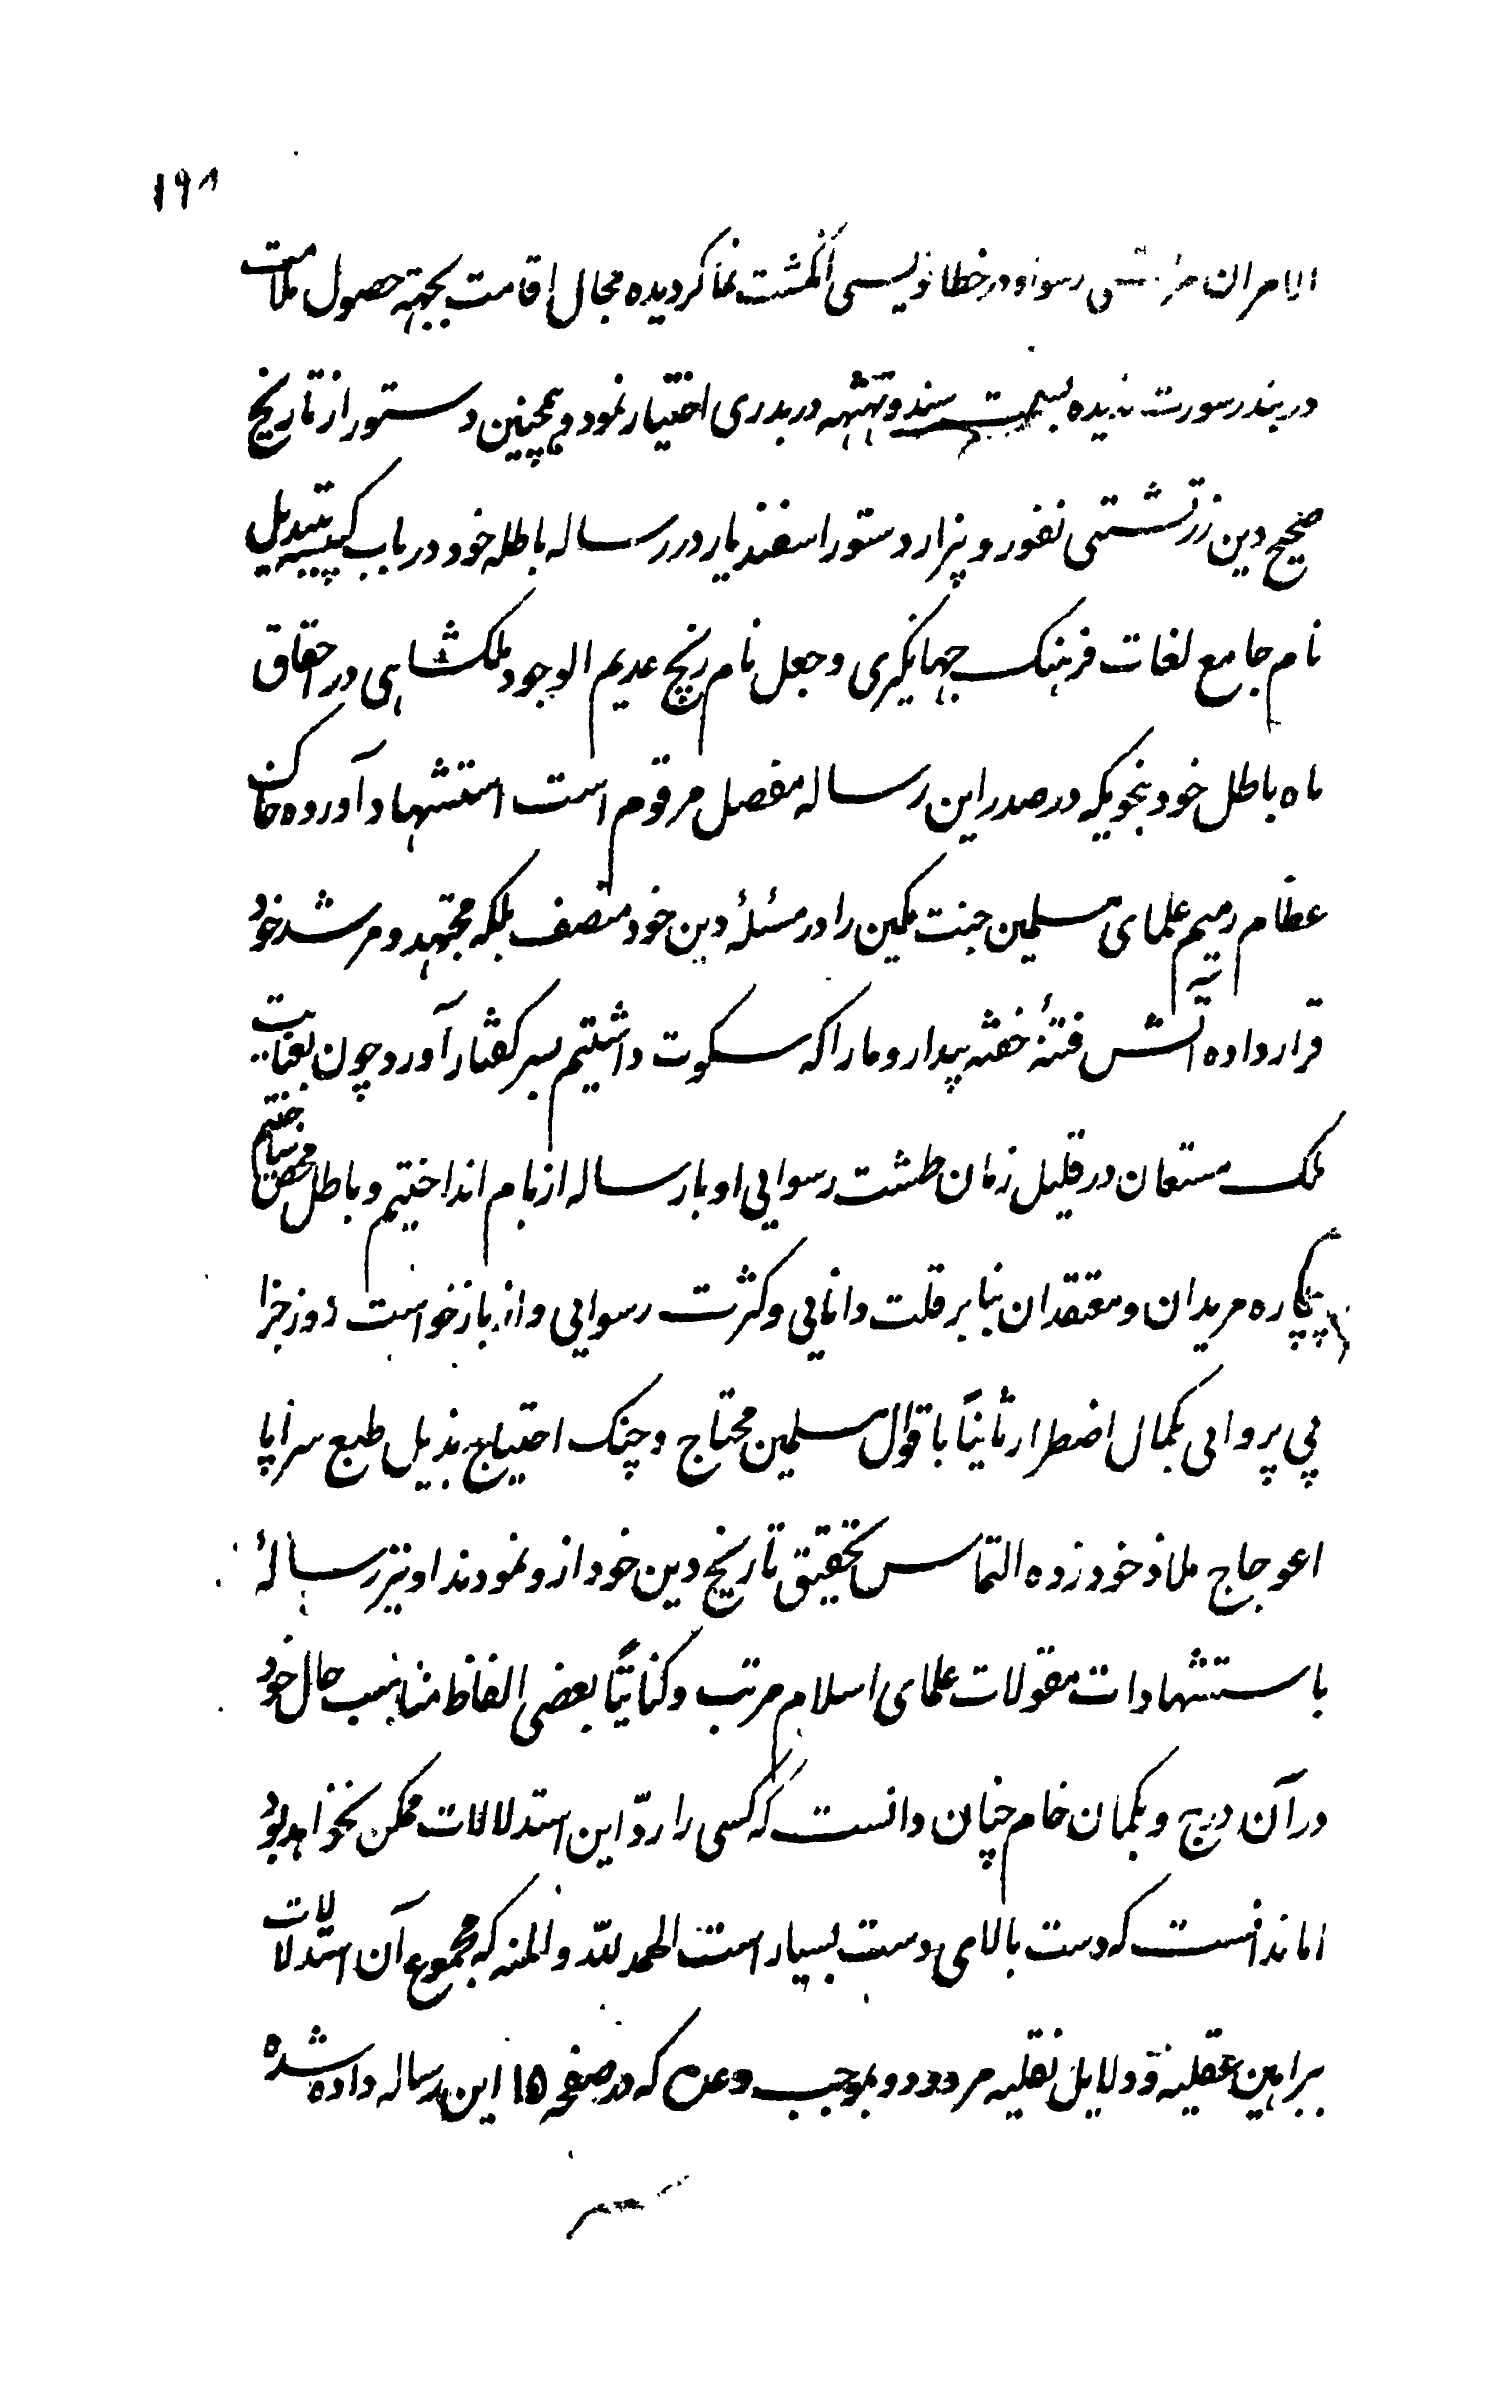 ۱۹۸
الامران رسوا و در خطا نویسی انگشت نما گردیده مجال اقامت بجهته حصول ملامت
در بندر سورت ندیده بسمت سند و تهتهه دربدری اختیار نمود و همچنین دستور از تاریخ
صحیح دین زرتشتی نفور و بیزار دستور اسفندیار در رساله باطله خود در باب کبیسه بتبدیل
نام جامع لغات فرهنک جهانکیری و جعل نام زیچ عدیم الوجود ملکشاهی در احقاق
ماه باطل خود بنحویکه در صدر این رساله مفصل مرقوم است استشهاد آورده خاک
عظام رمیم علمای مسلمین جنت مکین را در مسئلهٔ دین خود متصف بلکه مجتهد و مرشد خود
قرار داده آتش فتنهٔ خفته بیدار و ما را که سکوت داشتیم بسر کفتار آورد چون بعنایت
ملک مستعان در قلیل زمان طشت رسوایی او با رساله از بام انداختیم و باطل محض ساختیم
بیچاره مریدان و معتقدان بنابر قلت دانایی و کثرت رسوایی و از بازخواست روز جزا
بی پروایی بکمال اضطرار ثانیاً باقوال مسلمین محتاج و چنک احتیاج بذیل طبع سراپا
اعوجاج ملاذ خود زده التماس تحقیق تاریخ دین خود ازو نمودند او نیز رسالهٔ
باستشهادات مقولات علمای اسلام مرتب و کنایتاً بعضی الفاظ مناسب حال خود
در آن درج و بکمان خام چنان دانست که کسی را ردّ این استدلالات ممکن نخواهد بود
اما ندانست که دست بالای دست بسیار است الحمد لله والمنه که مجموع آن استدلالات
ببراهین عقلیه و دلایل نقلیه مردود و بموجب وعده که در صفحه ۱۵ این رساله داده شده